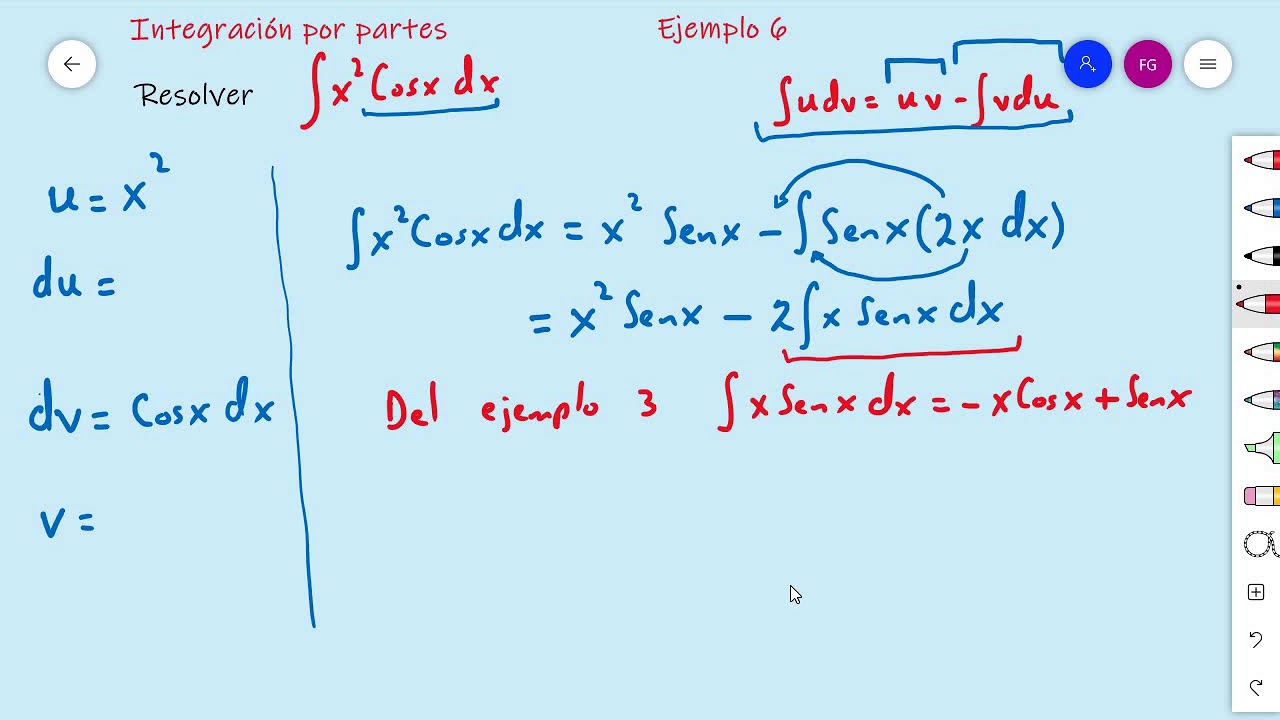 Integración por partes
Ejemplo 6
FG
Resolver ∫x² Cosx dx
∫udv = uv - ∫vdu
u = x²
du =
dv = Cosx dx
v =
∫x² Cosx dx = x² Senx - ∫Senx(2x dx)
= x² Senx - 2∫x Senx dx
Del ejemplo 3 ∫x Senx dx = -x Cosx + Senx